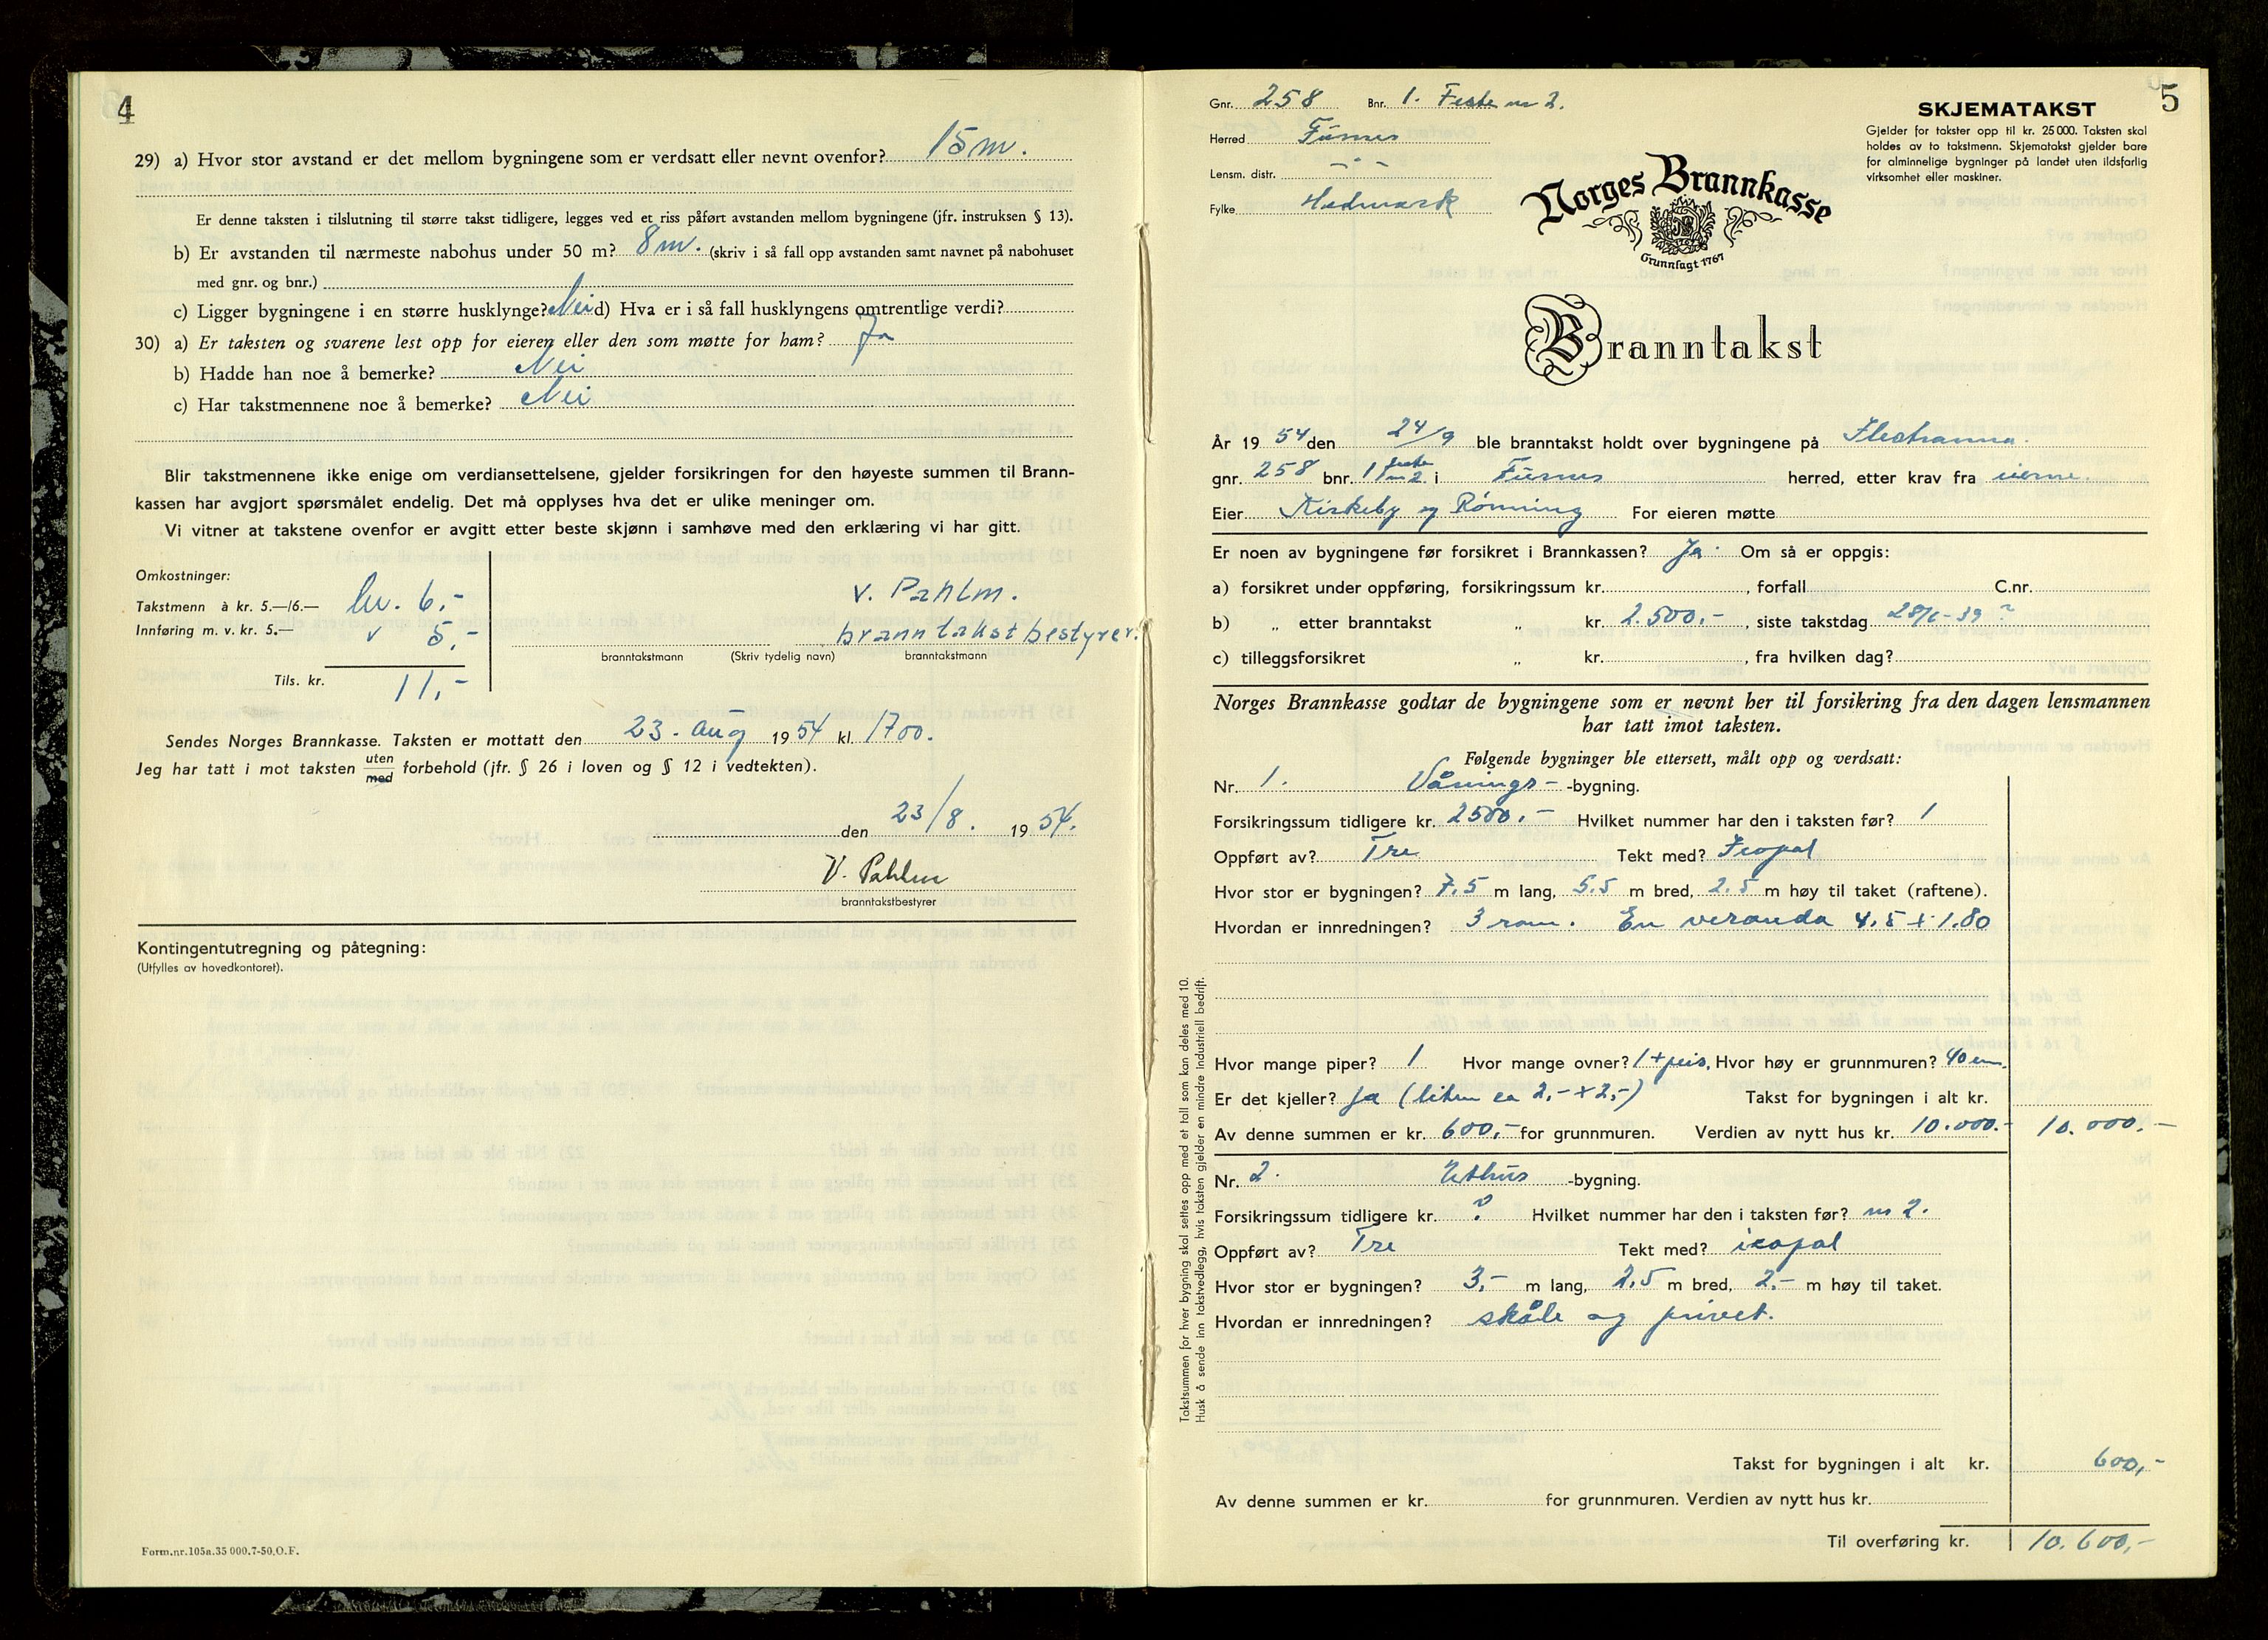 4
29) a) Hvor stor avstand er det mellom bygningene som er verdsatt eller nevnt ovenfor? 15 m.
Er denne taksten i tilslutning til større takst tidligere, legges ved et riss påført avstanden mellom bygningene (jfr. instruksen § 13).
b) Er avstanden til nærmeste nabohus under 50 m? 8 m. (skriv i så fall opp avstanden samt navnet på nabohuset
med gnr. og bnr.)
c) Ligger bygningene i en større husklynge? Nei d) Hva er i så fall husklyngens omtrentlige verdi?
30) a) Er taksten og svarene lest opp for eieren eller den som møtte for ham? Ja
b) Hadde han noe å bemerke? Nei
c) Har takstmennene noe å bemerke? Nei
Blir takstmennene ikke enige om verdiansettelsene, gjelder forsikringen for den høyeste summen til Brann-
kassen har avgjort spørsmålet endelig. Det må opplyses hva det er ulike meninger om.
Vi vitner at takstene ovenfor er avgitt etter beste skjønn i samhøve med den erklæring vi har gitt.
Omkostninger:
Takstmenn à kr. 5.—/6.— kr. 6,-
Innføring m. v. kr. 5.— " 5,-
Tils. kr. 11,-
V. Pahlm.
branntakstbestyrer.
branntakstmann (Skriv tydelig navn) branntakstmann
Sendes Norges Brannkasse. Taksten er mottatt den 23. aug 1954 kl. 1700.
Jeg har tatt i mot taksten uten/med forbehold (jfr. § 26 i loven og § 12 i vedtekten).
den 23/8. 1954.
V. Pahlm
branntakstbestyrer
Kontingentutregning og påtegning:
(Utfylles av hovedkontoret).
Form.nr.105a.35 000.7-50.O.F.
5
Gnr. 258 Bnr. 1. Feste nr 2.
Herred Furnes
Lensm. distr. - " -
Fylke Hedmark
SKJEMATAKST
Gjelder for takster opp til kr. 25 000. Taksten skal
holdes av to takstmenn. Skjematakst gjelder bare
for alminnelige bygninger på landet uten ildsfarlig
virksomhet eller maskiner.
Norges Brannkasse
Grunnlagt 1767
Branntakst
År 1954 den 24/9 ble branntakst holdt over bygningene på
gnr. 258 bnr. 1 feste nr 2. i Furnes herred, etter krav fra eierne.
Eier Kirkeby og Rønning For eieren møtte
Er noen av bygningene før forsikret i Brannkassen? Ja. Om så er oppgis:
a) forsikret under oppføring, forsikringssum kr. , forfall C.nr.
b) „ etter branntakst „ kr. 2.500,-, siste takstdag 28/6-39 ?
c) tilleggsforsikret „ kr. , fra hvilken dag?
Norges Brannkasse godtar de bygningene som er nevnt her til forsikring fra den dagen lensmannen
har tatt imot taksten.
Følgende bygninger ble ettersett, målt opp og verdsatt:
Nr. 1. Vånings- -bygning.
Forsikringssum tidligere kr. 2500.- Hvilket nummer har den i taksten før? 1
Oppført av? Tre Tekt med? Icopal
Hvor stor er bygningen? 7.5 m lang, 5.5 m bred, 2.5 m høy til taket (raftene).
Hvordan er innredningen? 3 rom. En veranda 4.5 x 1.80
Hvor mange piper? 1 Hvor mange ovner? 1 + peis, Hvor høy er grunnmuren? 40 cm.
Er det kjeller? Ja (liten ca 2,- x 2,-) Takst for bygningen i alt kr.
Av denne summen er kr. 600,- for grunnmuren. Verdien av nytt hus kr. 10.000.- 10.000.-
Nr. 2. Uthus -bygning.
Forsikringssum tidligere kr. ? Hvilket nummer har den i taksten før? nr 2.
Oppført av? Tre Tekt med? icopal
Hvor stor er bygningen? 3,- m lang, 2.5 m bred, 2.- m høy til taket.
Hvordan er innredningen? skåle og privet.
Takst for bygningen i alt kr. 600,-
Av denne summen er kr. for grunnmuren. Verdien av nytt hus kr.
Til overføring kr. 10.600,-
Takstsummen for hver bygning skal settes opp med et tall som kan deles med 10.
Husk å sende inn takstvedlegg, hvis taksten gjelder en mindre industriell bedrift.